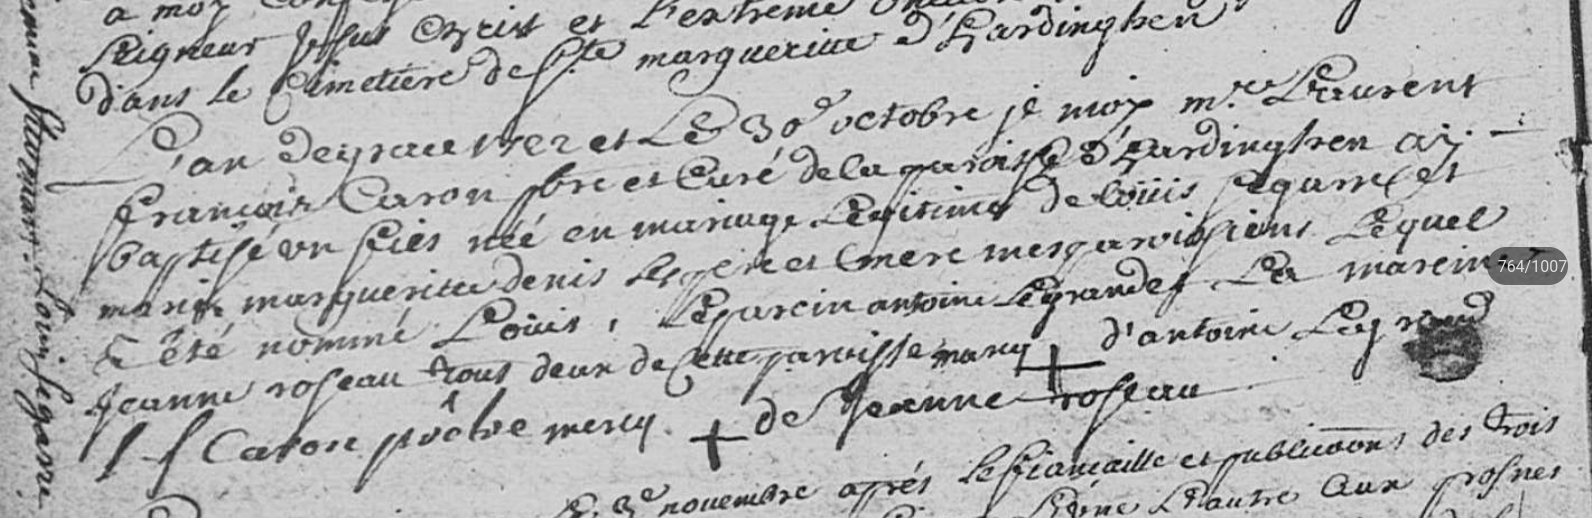 a moy
Seigneur Jesus Christ et L'extreme
dans le Cimetiere de Ste marguerite d'hardinghen
L'an de grace et Le 30e octobre je moy mre Laurent
francois Caron pbre et Curé de la paroisse d'hardinghen ay
baptisé un fils né en mariage Legitime de Loüis Segarre et
marie marguerite denis ses pere et mere mes paroissiens Lequel
a été nommé Loüis, Le parein antoine Legrand et La mareine
Jeanne roseau tous deux de cette paroisse marq d'antoine Legrand
L f Caron prêtre merq de Jeanne roseau
novembre aprés le fiancaille et publications des trois
L'autre Aux prosnes
Louis Segarre
764/1007